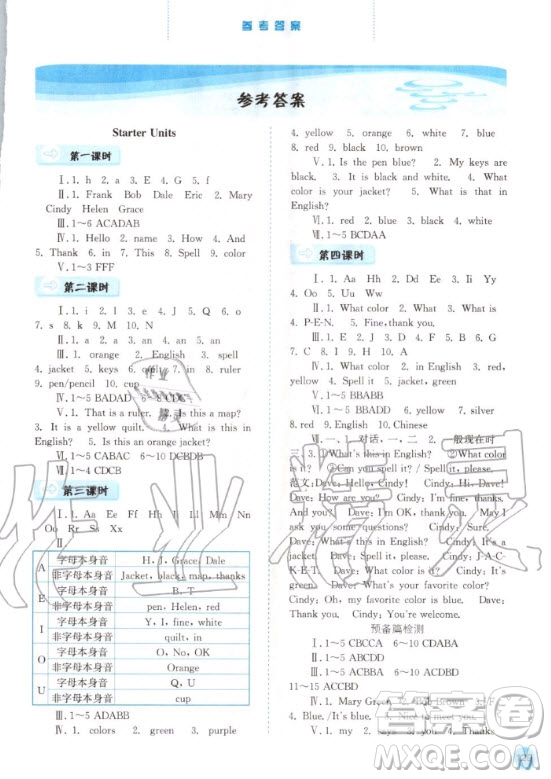 参考答案
参考答案
Starter Units
第一课时
Ⅰ.1. h 2. a 3. E 4. G 5. f
Ⅱ.1. Frank Bob Dale Eric 2. Mary
Cindy Helen Grace
Ⅲ.1~6 ACADAB
Ⅳ.1. Hello 2. name 3. How 4. And
5. Thank 6. in 7. This 8. color 9. is
Ⅴ.1~3 FFF
第二课时
Ⅰ.1. i 2. l 3. e 4. J 5. Q 6. o
7. s 8. k 9. M 10. N
Ⅱ.1. a 2. an 3. a 4. an 5. an
Ⅲ.1. orange 2. English 3. spell
4. jacket 5. keys 6. quilt 7. in 8. ruler
9. pen/pencil 10. cup
Ⅳ.1~5 BADAD 6~8 CDC
Ⅴ.1. That is a ruler. 2. Is this a map?
3. It is a yellow quilt. 4. What is this in
English? 5. Is this an orange jacket?
Ⅵ.1~5 CABAC 6~10 DCBDB
Ⅶ.1~4 CDCB
第三课时
Ⅰ.1. Aa Ee Ff Hh Ii Mm Nn
Oo Rr Ss Xx
A 字母本身音 H, J, Grace, Dale
非字母本身音 Jacket, black, map, thanks
E 字母本身音 B, T
非字母本身音 pen, Helen, red
I 字母本身音 I, Y, fine, white
非字母本身音 quilt, in
O 字母本身音 O, No, OK
非字母本身音 Orange
U 字母本身音 Q, U
非字母本身音 cup
Ⅲ.1~5 ADABB
Ⅳ.1. colors 2. green 3. purple
4. yellow 5. orange 6. white 7. blue
8. red 9. black 10. brown
Ⅴ.1. Is the pen blue? 2. My keys are
black. 3. It is black and white. 4. What
color is your jacket? 5. What is that in
English?
Ⅵ.1. red 2. blue 3. black 4. white
Ⅶ.1~5 BCDAA
第四课时
Ⅰ.1. Aa Hh Jj Kk 2. Ii
4. Oo 5. Uu Ww
Ⅱ.1. What color 2. What is
4. P-E-N. 5. Fine, thank you.
Ⅲ.1. E 2. D 3. B 4. C 5. A
Ⅳ.1. What color 2. in English 3. red,
yellow 4. Spell it 5. jacket, green
Ⅴ.1~5 BBABB
Ⅵ.1~5 BBADD 6. yellow 7. silver
8. red 9. English 10. Chinese
Ⅶ.一、1. 对话,一,二 2. 一般现在时
二、3.①What's this in English? ②What color
is it? ①Can you spell it? / Spell it, please.
范文: Dave: Hello, Cindy! Cindy: Hello,
Dave! How are you? Dave: I'm OK, thanks.
And you? Cindy: I'm OK, too. Dave: May I
ask you some questions? Cindy: Sure.
Dave: What's this in English? Cindy: It's a
jacket. Dave: Spell it, please. Cindy: J-A-C-
K-E-T. Dave: What color is it? Cindy: It's
green. Dave: What's your favorite color?
Cindy: Oh, my favorite color is blue. Dave:
Thank you. Cindy: You're welcome.
预备篇检测
Ⅰ.1~5 CBCCA 6~10 CDABA
Ⅱ.1~5 ABCDD
Ⅲ.1~5 ACBBA 6~10
11~15 ACCBD
Ⅳ.1. Mary Green 2. 3. Black
4. Blue./It's blue. 5. Nice to meet you.
Ⅴ.1. my 2. says 3. in 4. Can 5. you
作业
答案